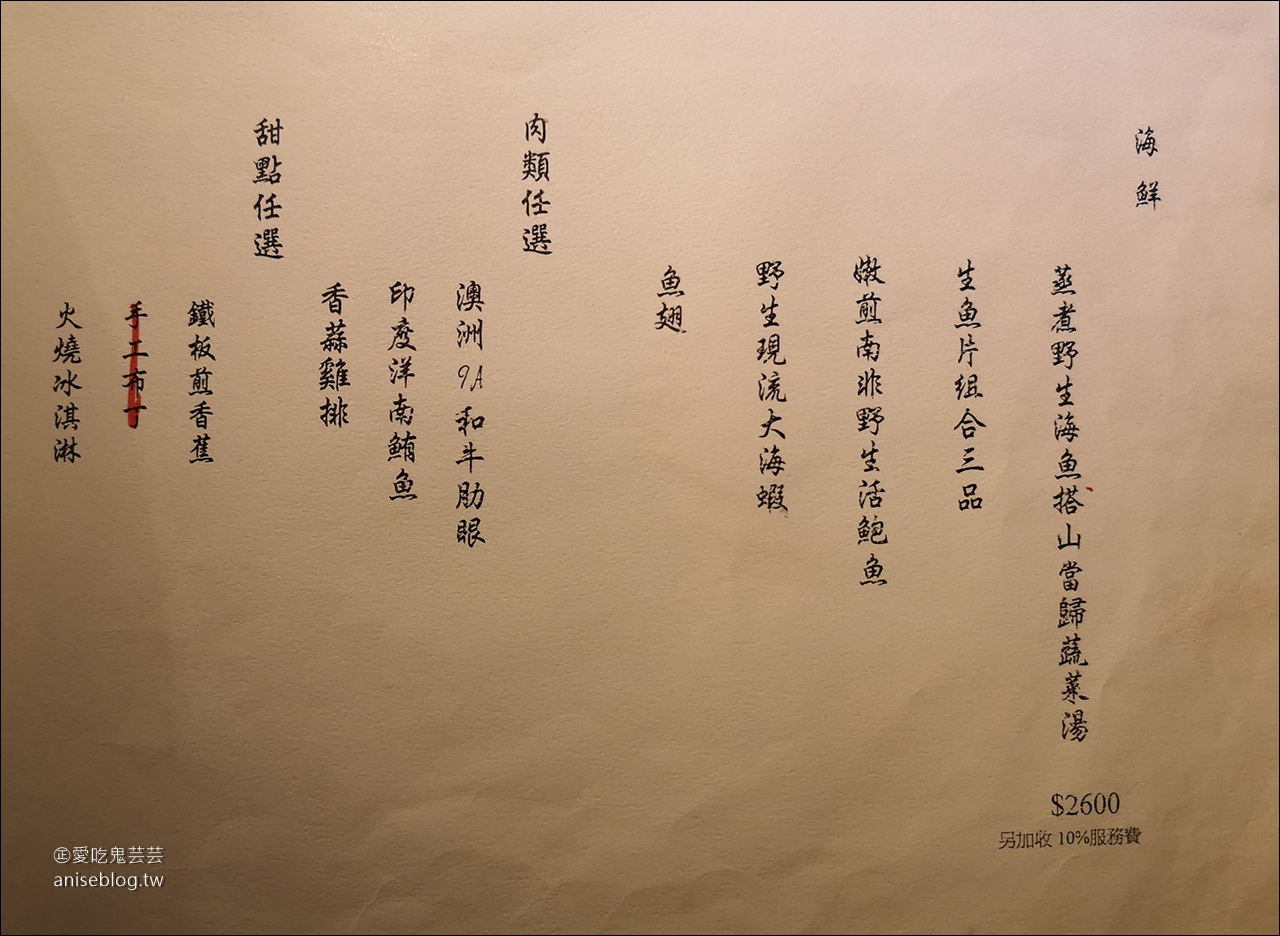 海鮮
蒸煮野生海魚搭山當歸蔬菜湯
生魚片組合三品
嫩煎南非野生活鮑魚
野生現流大海蝦
魚翅
肉類任選
澳洲9A和牛肋眼
印度洋南鮪魚
香蒜雞排
甜點任選
鐵板煎香蕉
手工布丁
火燒冰淇淋
$2600
另加收 10%服務費
㊣愛吃鬼芸芸
aniseblog.tw